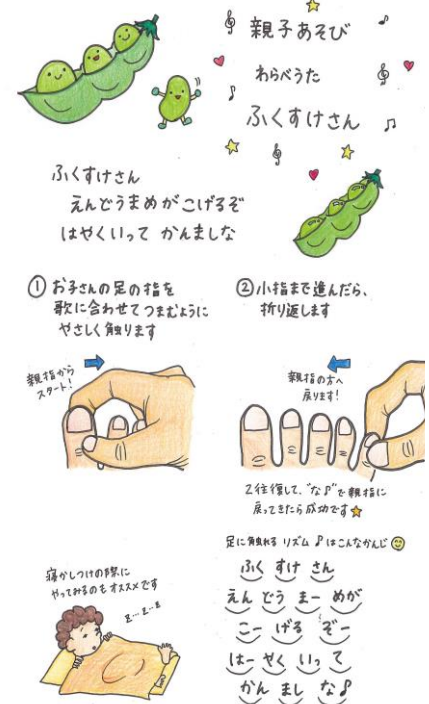 親子あそび
わらべうた
ふくすけさん
ふくすけさん
えんどうまめがこげるぞ
はやくいって かんましな
① お子さんの足の指を
歌に合わせてつまむように
やさしく触ります
親指から
スタート!
②小指まで進んだら、
折り返します
親指の方へ
戻ります!
2往復して、“な♪”で親指に
戻ってきたら成功です
寝かしつけの際に
やってみるのもオススメです
z…z…z
足に触れる リズム♪はこんなかんじ
ふく すけ さん
えん どう まー めが
こー げる ぞー
はー やく いっ て
かん まし な♪